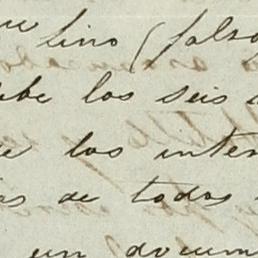 lino (falso
be los seis
e los inter
as de todos
un docum